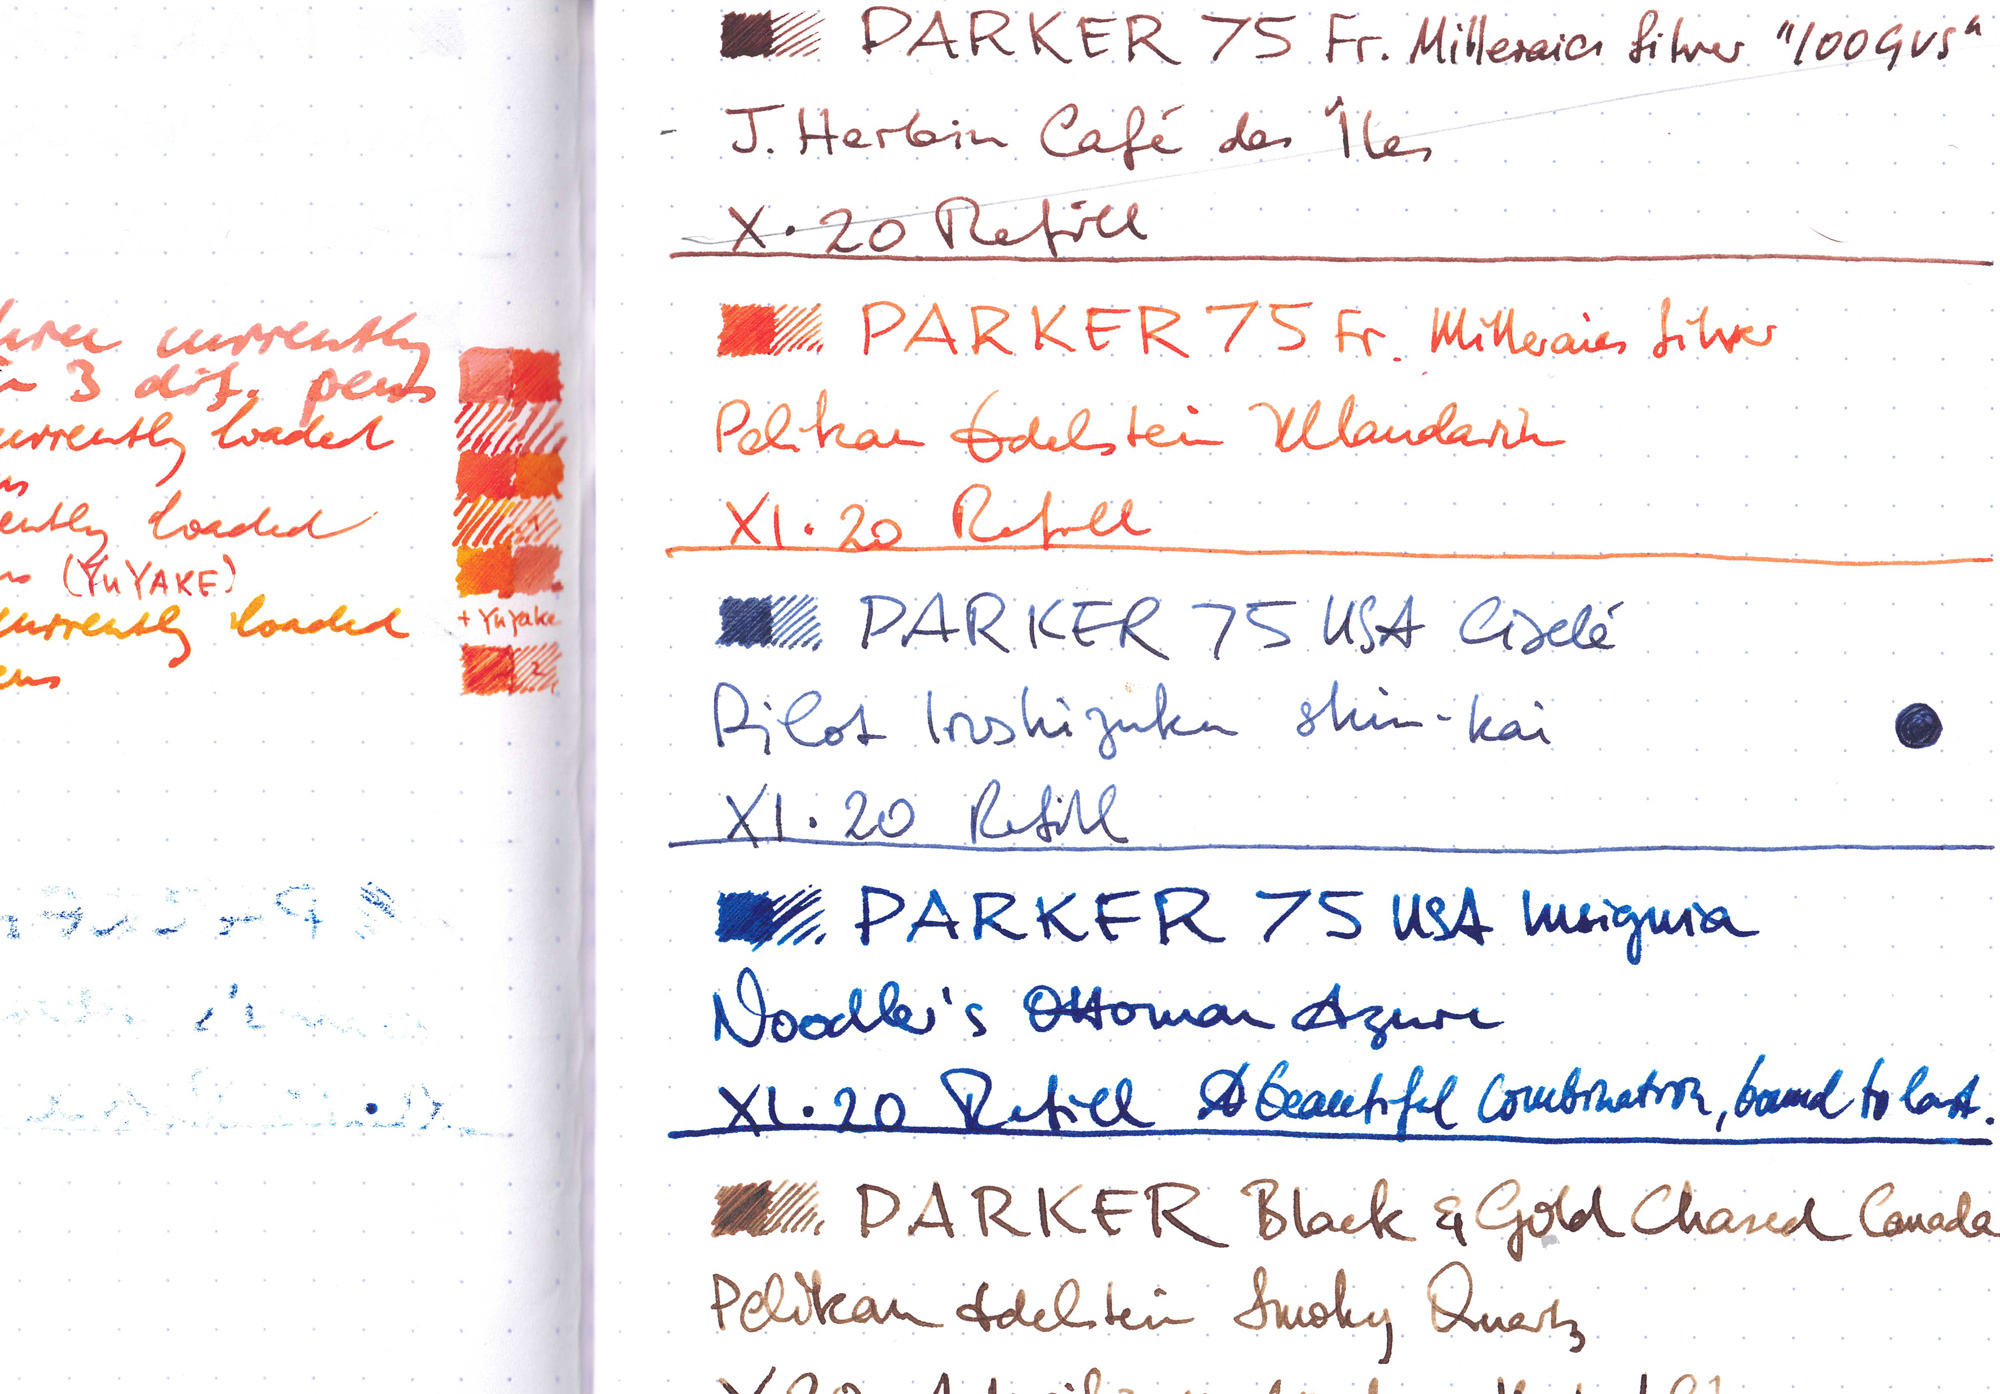 currently
3 dif. pens
currently loaded
loaded
(YuYAKE)
currently loaded
+ Yuyake
2
PARKER 75 Fr. Milleraies Silver "100GVS"
J. Herbin Café des Îles
X·20 Refill
PARKER 75 Fr. Milleraies Silver
Pelikan Edelstein Mandarin
XI·20 Refill
PARKER 75 USA Ciselé
Pilot Iroshizuku shin-kai
XI·20 Refill
PARKER 75 USA Insignia
Noodler's Ottoman Azure
XI·20 Refill A beautiful combination, bound to last.
PARKER Black & Gold Chased Canada
Pelikan Edelstein Smoky Quartz